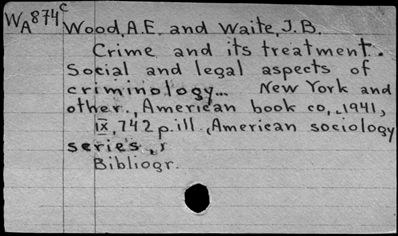 WA874c Wood, A.E. and Waite, J.B.
Crime and its treatment.
Social and legal aspects of
criminology... New York and
other., American book co,.1941,
IX, 742 p. ill. (American sociology
series,)
Bibliogr.